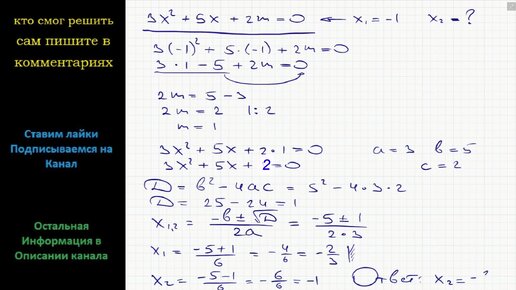 кто смог решить
сам пишите в
комментариях
Ставим лайки
Подписываемся на
Канал
Остальная
Информация в
Описании канала
3x² + 5x + 2m = 0 ← x₁ = -1 x₂ - ?
3(-1)² + 5·(-1) + 2m = 0
3·1 - 5 + 2m = 0
2m = 5 - 3
2m = 2 |:2
m = 1
3x² + 5x + 2·1 = 0 a = 3 b = 5
3x² + 5x + 2 = 0 c = 2
D = b² - 4ac = 5² - 4·3·2
D = 25 - 24 = 1
x₁,₂ = (-b ± √D)/2a = (-5 ± 1)/(2·3)
x₁ = (-5+1)/6 = -4/6 = -2/3
x₂ = (-5-1)/6 = -6/6 = -1 Ответ: x₂ = -